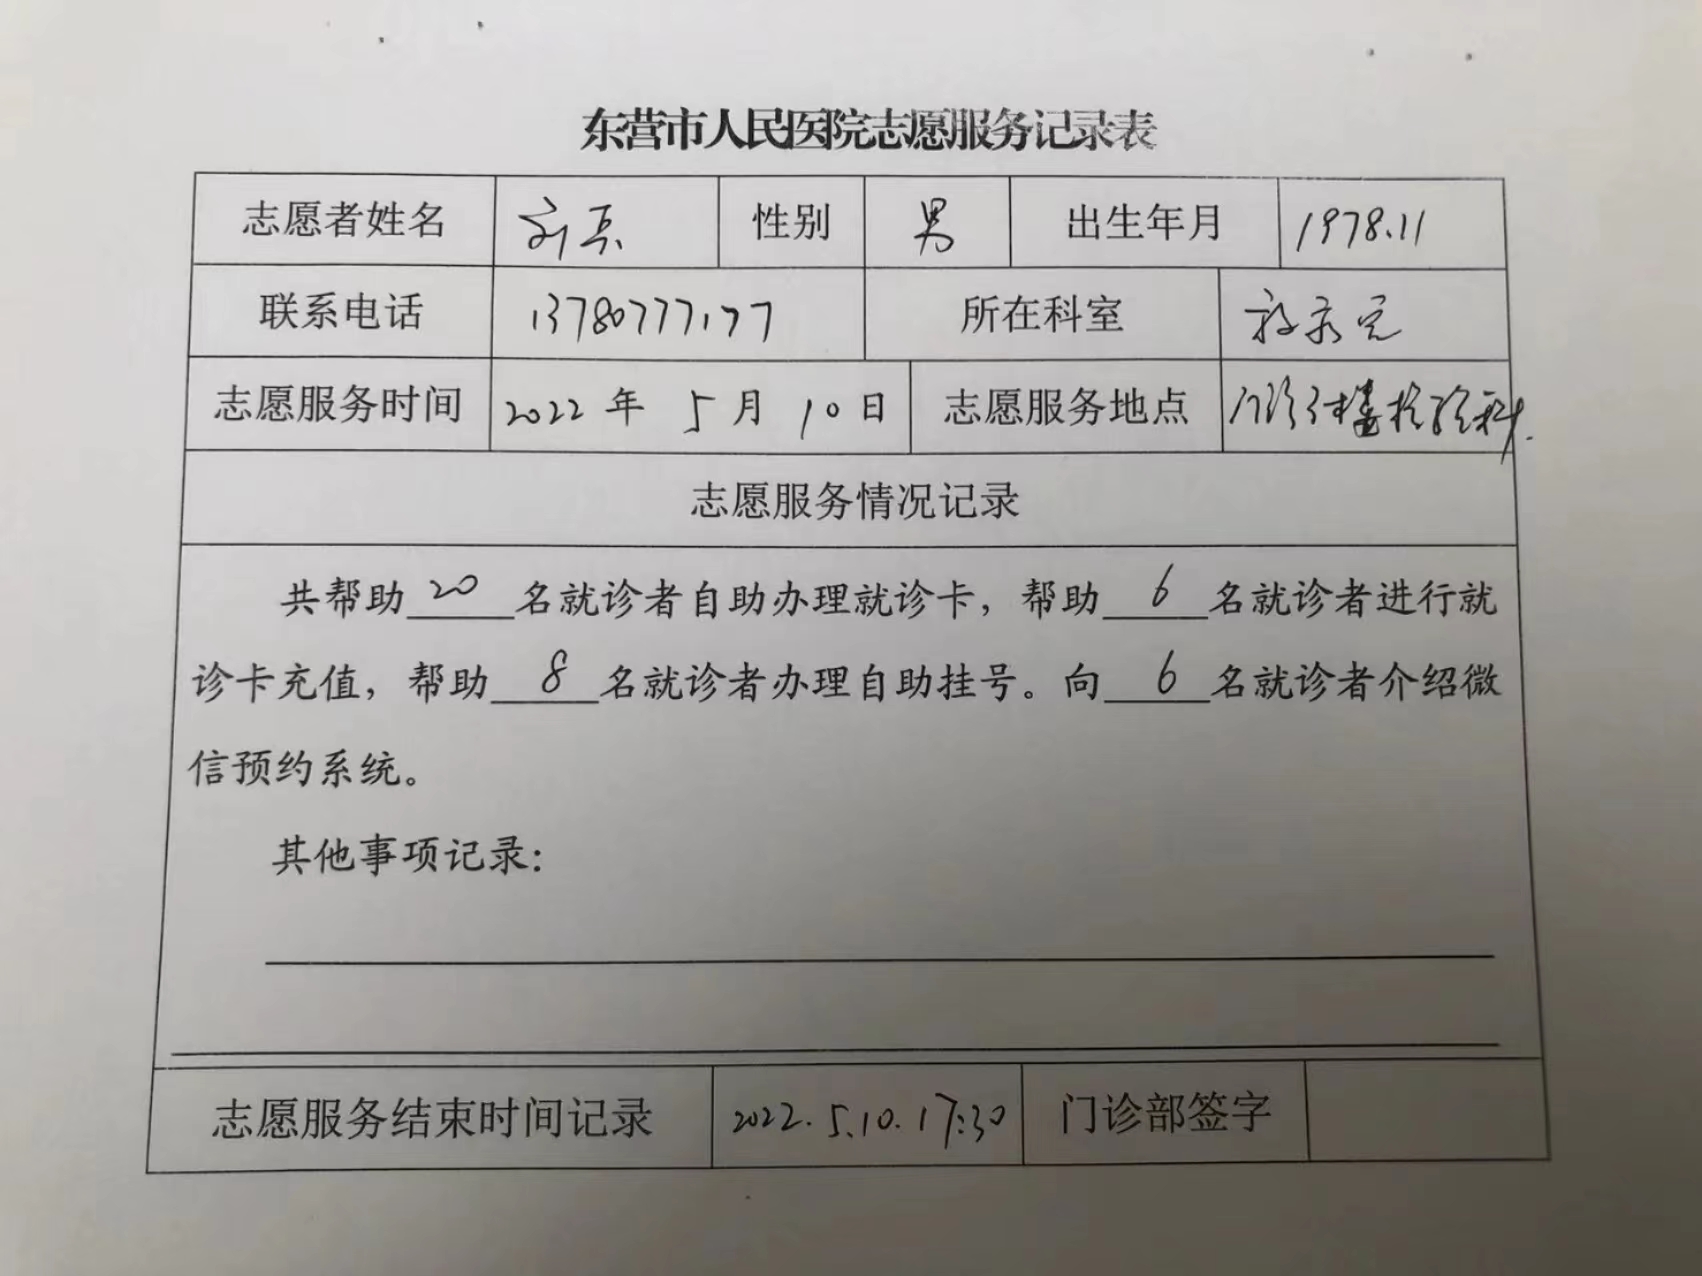 东营市人民医院志愿服务记录表
志愿者姓名 刘 性别 男 出生年月 1978.11
联系电话 13780777177 所在科室
志愿服务时间 2022年 5月 10日 志愿服务地点 门诊1楼检验科.
志愿服务情况记录
共帮助20名就诊者自助办理就诊卡，帮助6名就诊者进行就
诊卡充值，帮助8名就诊者办理自助挂号。向6名就诊者介绍微
信预约系统。
其他事项记录：
志愿服务结束时间记录 2022.5.10.17:30 门诊部签字